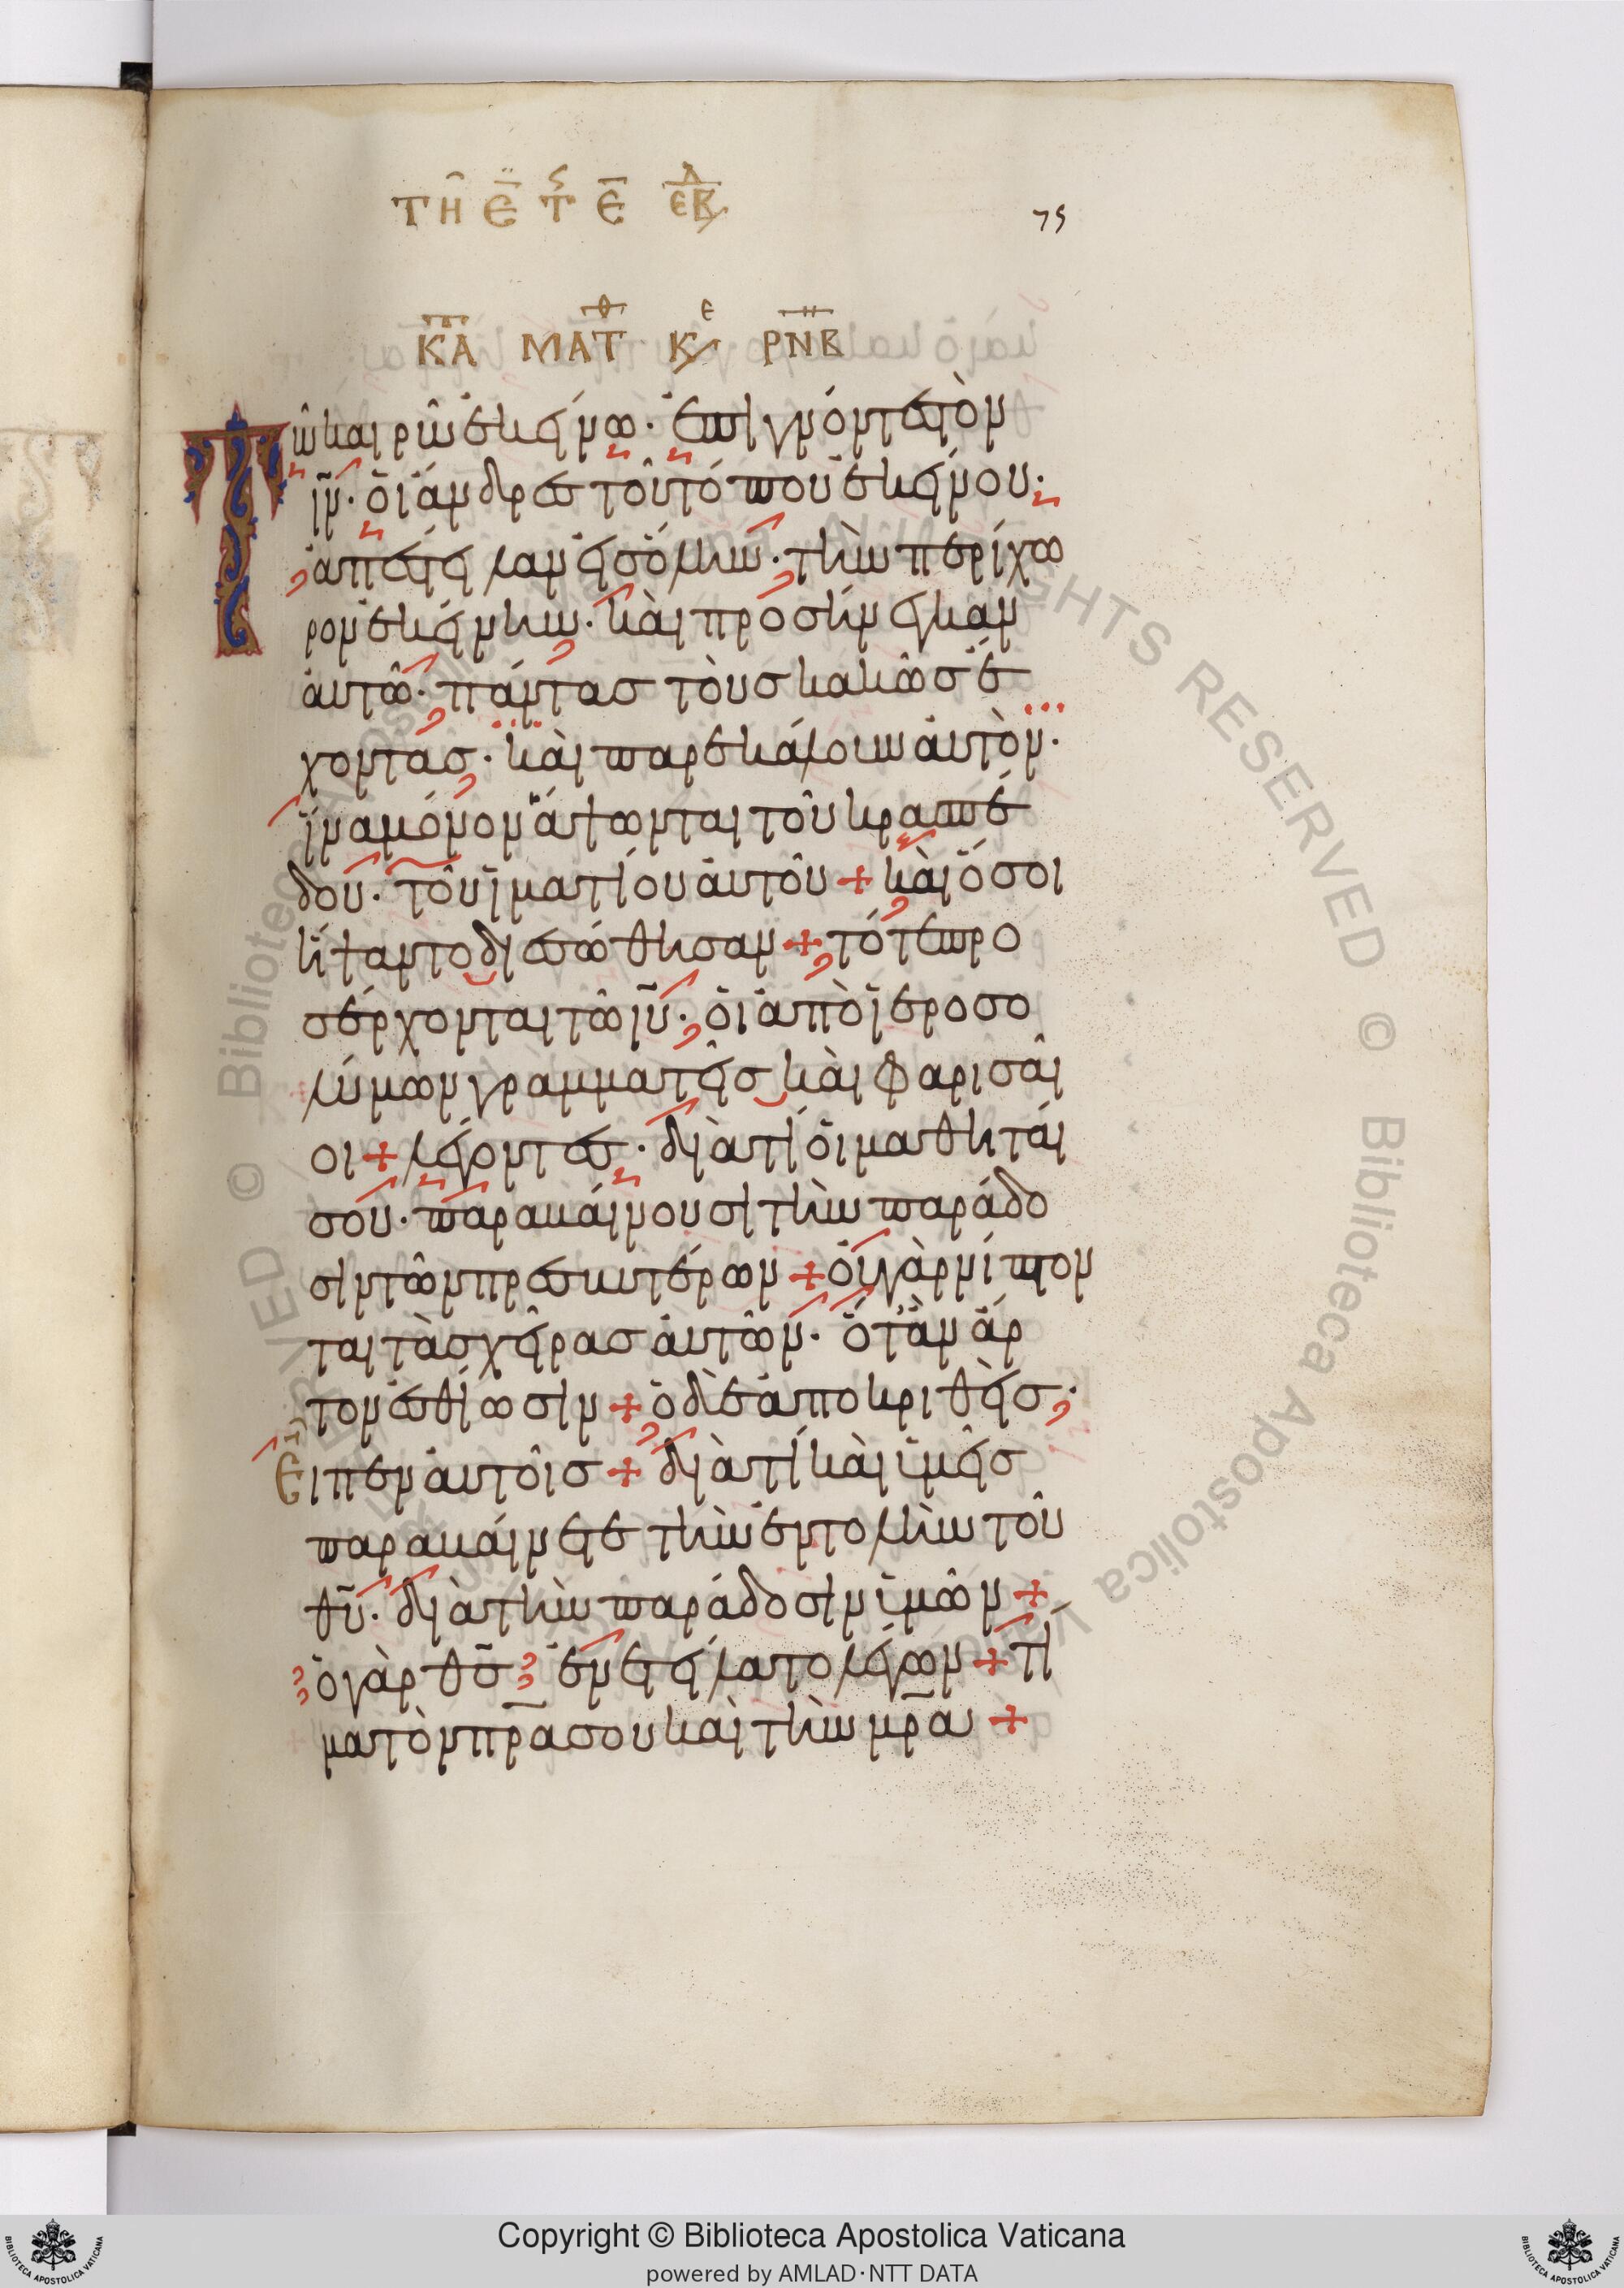 ΤΗ Ε Τ Ε ΕΒΔ
75
ΚΑ ΜΑΤΘ ΚΕ ΡΝΗ
Τῶ καιρῶ ἐκείνω· ἐπιγνόντες τὸν
ἰν̅· ὁι ἄνδρες τοῦ τόπου ἐκείνου·
ἀπέστειλαν εἰς ὅλην· τὴν περίχω
ρον ἐκείνην· καὶ προσήνεγκαν
ἀυτῶ· πάντας τοὺς κακῶς ἔ
χοντας· καὶ παρεκάλουν ἀυτὸν·
ἵνα μόνον ἅψωνται τοῦ κρασπέ
δου· τοῦ ἱματίου ἀυτοῦ + καὶ ὅσοι
ἥψαντο διεσώθησαν + τότε προ
σέρχονται τῶ ἰυ̅· ὁι ἀπὸ ἱεροσο
λύμων γραμματεῖς καὶ φαρισαῖ
οι + λέγοντες· διὰ τί ὁι μαθηταί
σου· παραβαίνουσι τὴν παράδο
σιν τῶν πρεσβυτέρων + ὀυ γὰρ νίπτον
ται τὰς χεῖρας ἀυτῶν· ὅταν ἄρ
τον ἐσθίωσιν + ὁ δὲ ἀποκριθεὶς·
Εἶπεν ἀυτοῖς + διὰ τί καὶ ὑμεῖς
παραβαίνετε τὴν ἐντολὴν τοῦ
θυ̅· διὰ τὴν παράδοσιν ὑμῶν +
ὁ γὰρ θς̅ ἐνετείλατο λέγων + τί
μα τὸν πρ̅α σου καὶ τὴν μρ̅α +
Copyright © Biblioteca Apostolica Vaticana
powered by AMLAD·NTT DATA